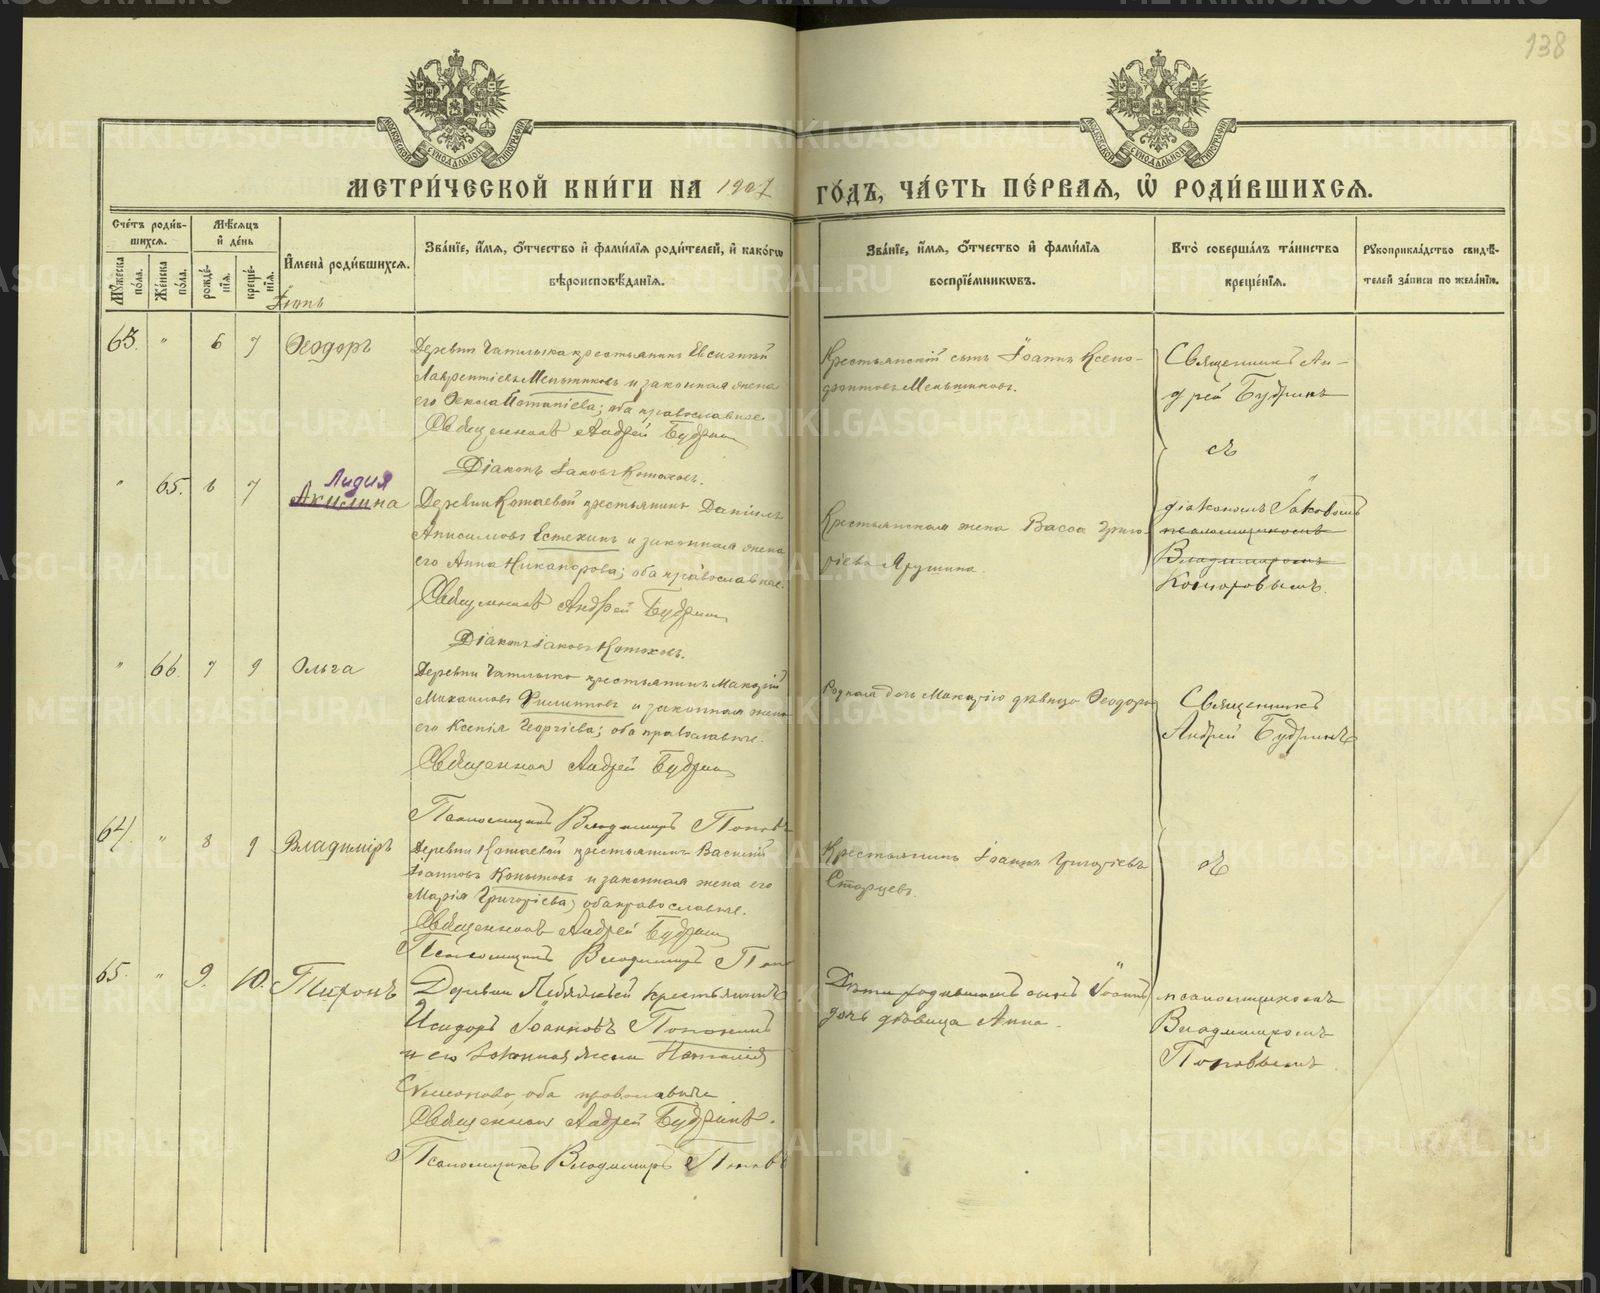 138
МЕТРИ́ЧЕСКОЙ КНИ́ГИ НА 1907 ГО́ДЪ, ЧА́СТЬ ПЕ́РВАЯ, Ѿ РОДИ́ВШИХСЯ.
Сче́тъ роди́в-
шихся.
Мꙋ́жеска по́ла.
Же́нска по́ла.
Мѣ́сяцъ
и де́нь
рожде́нїя.
креще́нїя.
И҆мена̀ роди́вшихся.
Зва́нїе, и҆́мя, ѻ҆́тчество и҆ фами́лїя роди́телей, и҆ како́гѡ
вѣроисповѣ́данїя.
Зва́нїе, и҆́мя, ѻ҆́тчество и҆ фами́лїя
воспрїе́мникѡвъ.
Кто̀ соверша́лъ та́инство
креще́нїя.
Рꙋкоприкла́дство свидѣ́-
телей за́писи по жела́нїю.
Іюнь
63. " 6 7 Ѳеодоръ
Деревни Чатлыка крестьянинъ Евсигній
Лаврентіевъ Меньшиковъ и законная жена
его Ѳекла Потапіева; оба православные.
Священникъ Андрей Будринъ
Діаконъ Іаковъ Комоховъ.
Крестьянскій сынъ Іоаннъ Ксено-
фонтовъ Меньшиковъ.
Священникъ Ан-
дрей Будринъ
съ
" 65. 6 7 Лидия
Акилина
Деревни Коташевой крестьянинъ Даніилъ
Анисимовъ Естехинъ и законная жена
его Анна Никанорова; оба православные.
Священникъ Андрей Будринъ
Діаконъ Іаковъ Комоховъ.
Крестьянская жена Васса Григо-
ріева Ярушина.
діакономъ Іаковомъ
псаломщикомъ
Владимиромъ
" 66. 7 9 Ольга
Деревни Чатлыка крестьянинъ Макарій
Михаиловъ Филипповъ и законная жена
его Ксенія Георгіева; оба православные.
Священникъ Андрей Будринъ
Псаломщикъ Владимиръ Поповъ
Родная дочь Макарію дѣвица Ѳеодора
Священникъ
Андрей Будринъ
64. " 8 9 Владиміръ
крестьянинъ Василій
Іоанновъ Копытовъ и законная жена его
Марія Григоріева; оба православные.
Священникъ Андрей Будринъ
Псаломщикъ Владимиръ Поп
Крестьянинъ Іоаннъ Григоріевъ
Старцевъ.
съ
65. " 9. 10. Тихонъ
Деревни крестьянинъ
Исидоръ Іоанновъ
и его законная жена Наталія
Симеонова, оба православные
Священникъ Андрей Будринъ.
Псаломщикъ Владимиръ Поповъ
Дѣти сынъ Іоаннъ
дочь дѣвица Анна.
псаломщикомъ
Владимиромъ
Поповымъ
METRIKI.GASO-URAL.RU